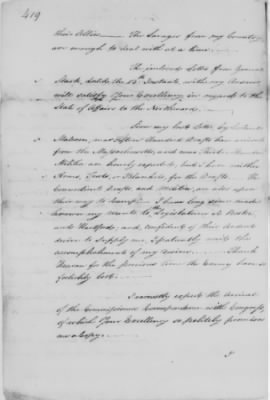 419
their Allies — The Savages from my Country
are enough to deal with at a time.
The inclosed Letter from General
Stark, dated the 15th Instant with my Answer
will satisfy Your Excellency in regard to the
State of Affairs to the Northward.
Since my last Letter by
was fifteen hundred Drafts have arrived
from the Massachusetts, and
Militia are hourly expected, but I have neither
Arms, Tents, or Blankets for the Drafts. The
Connecticut Drafts and Militia, are also upon
their way to Camp. I have long since made
known my wants to Legislatures at Boston,
and Hartford, and, confident of their ardent
desire to Supply me, I patiently wait the
accomplishment of my desires. — Thank
Heaven for the precious time the Enemy have so
foolishly lost.
I earnestly expect the arrival
of the Commissioners Correspondence with Congress,
of which Your Excellency so politely promises
me a Copy.